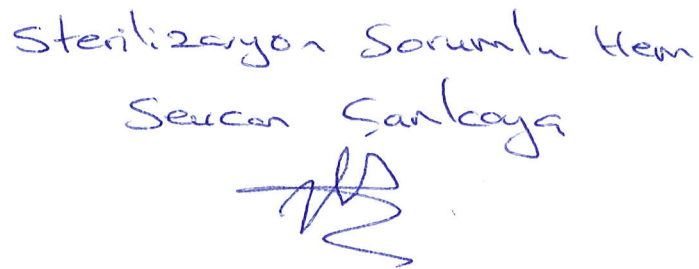 Sterilizasyon Sorumlu Hem
Sevcan Çankaya